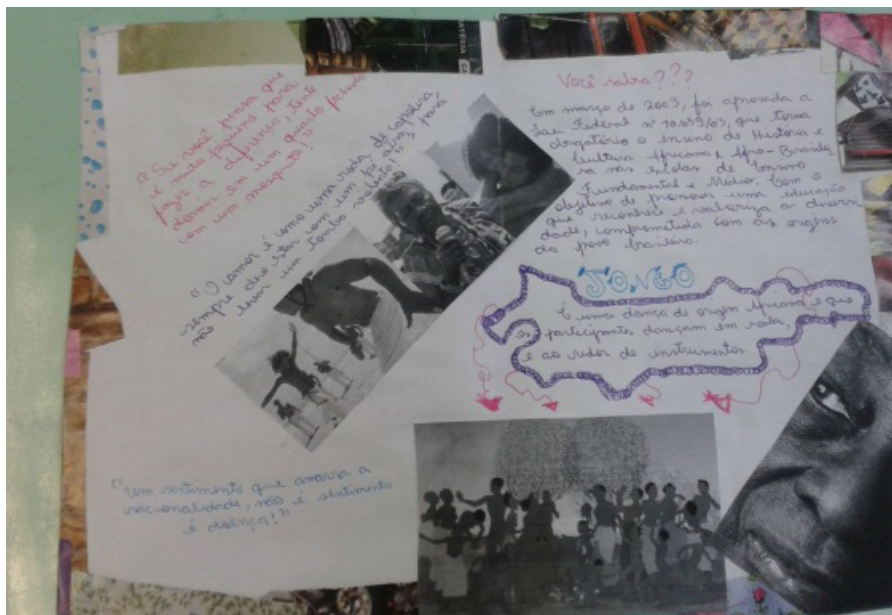 "Se você pensa que
é muito pequeno para
fazer a diferença, tente
dormir em um quarto fechado
com um mosquito!"
"O amor é como uma roda de capoeira,
sempre deve estar com um pé atrás para
não levar um tombo valente!"
"Um sentimento que amarra a
nacionalidade, não é sentimento
é doença!"
Você sabia???
Em março de 2003, foi aprovada a
Lei Federal nº 10.639/03, que torna
obrigatório o ensino de História e
Cultura Africana e Afro-Brasilei
ra nas escolas de Ensino
Fundamental e Médio. Com o
objetivo de promover uma educação
que reconhece e valoriza a diversi
dade, comprometida com as origens
do povo brasileiro.
JONGO
É uma dança de origem Africana e que
os participantes dançam em roda,
e ao redor de instrumentos.